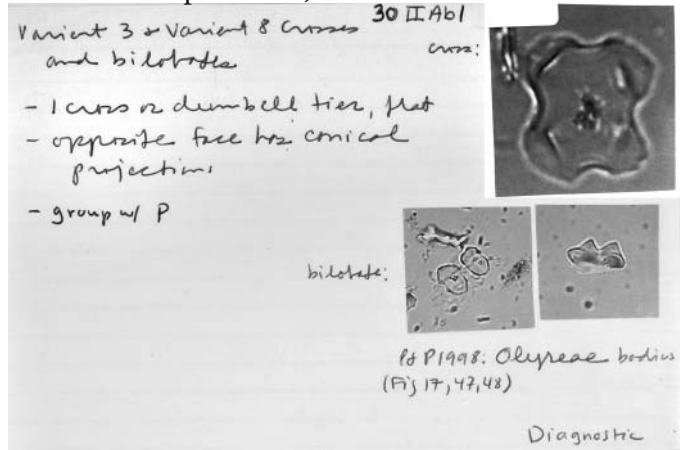 30 II Ab1
Variant 3 & Variant 8 Crosses
and bilobates
cross:
- 1 cross or dumbell tier, flat
- opposite face has conical
projections
- group w/ P
bilobate:
P & P 1998: Olyreae bodies
(Fig 17, 47, 48)
Diagnostic